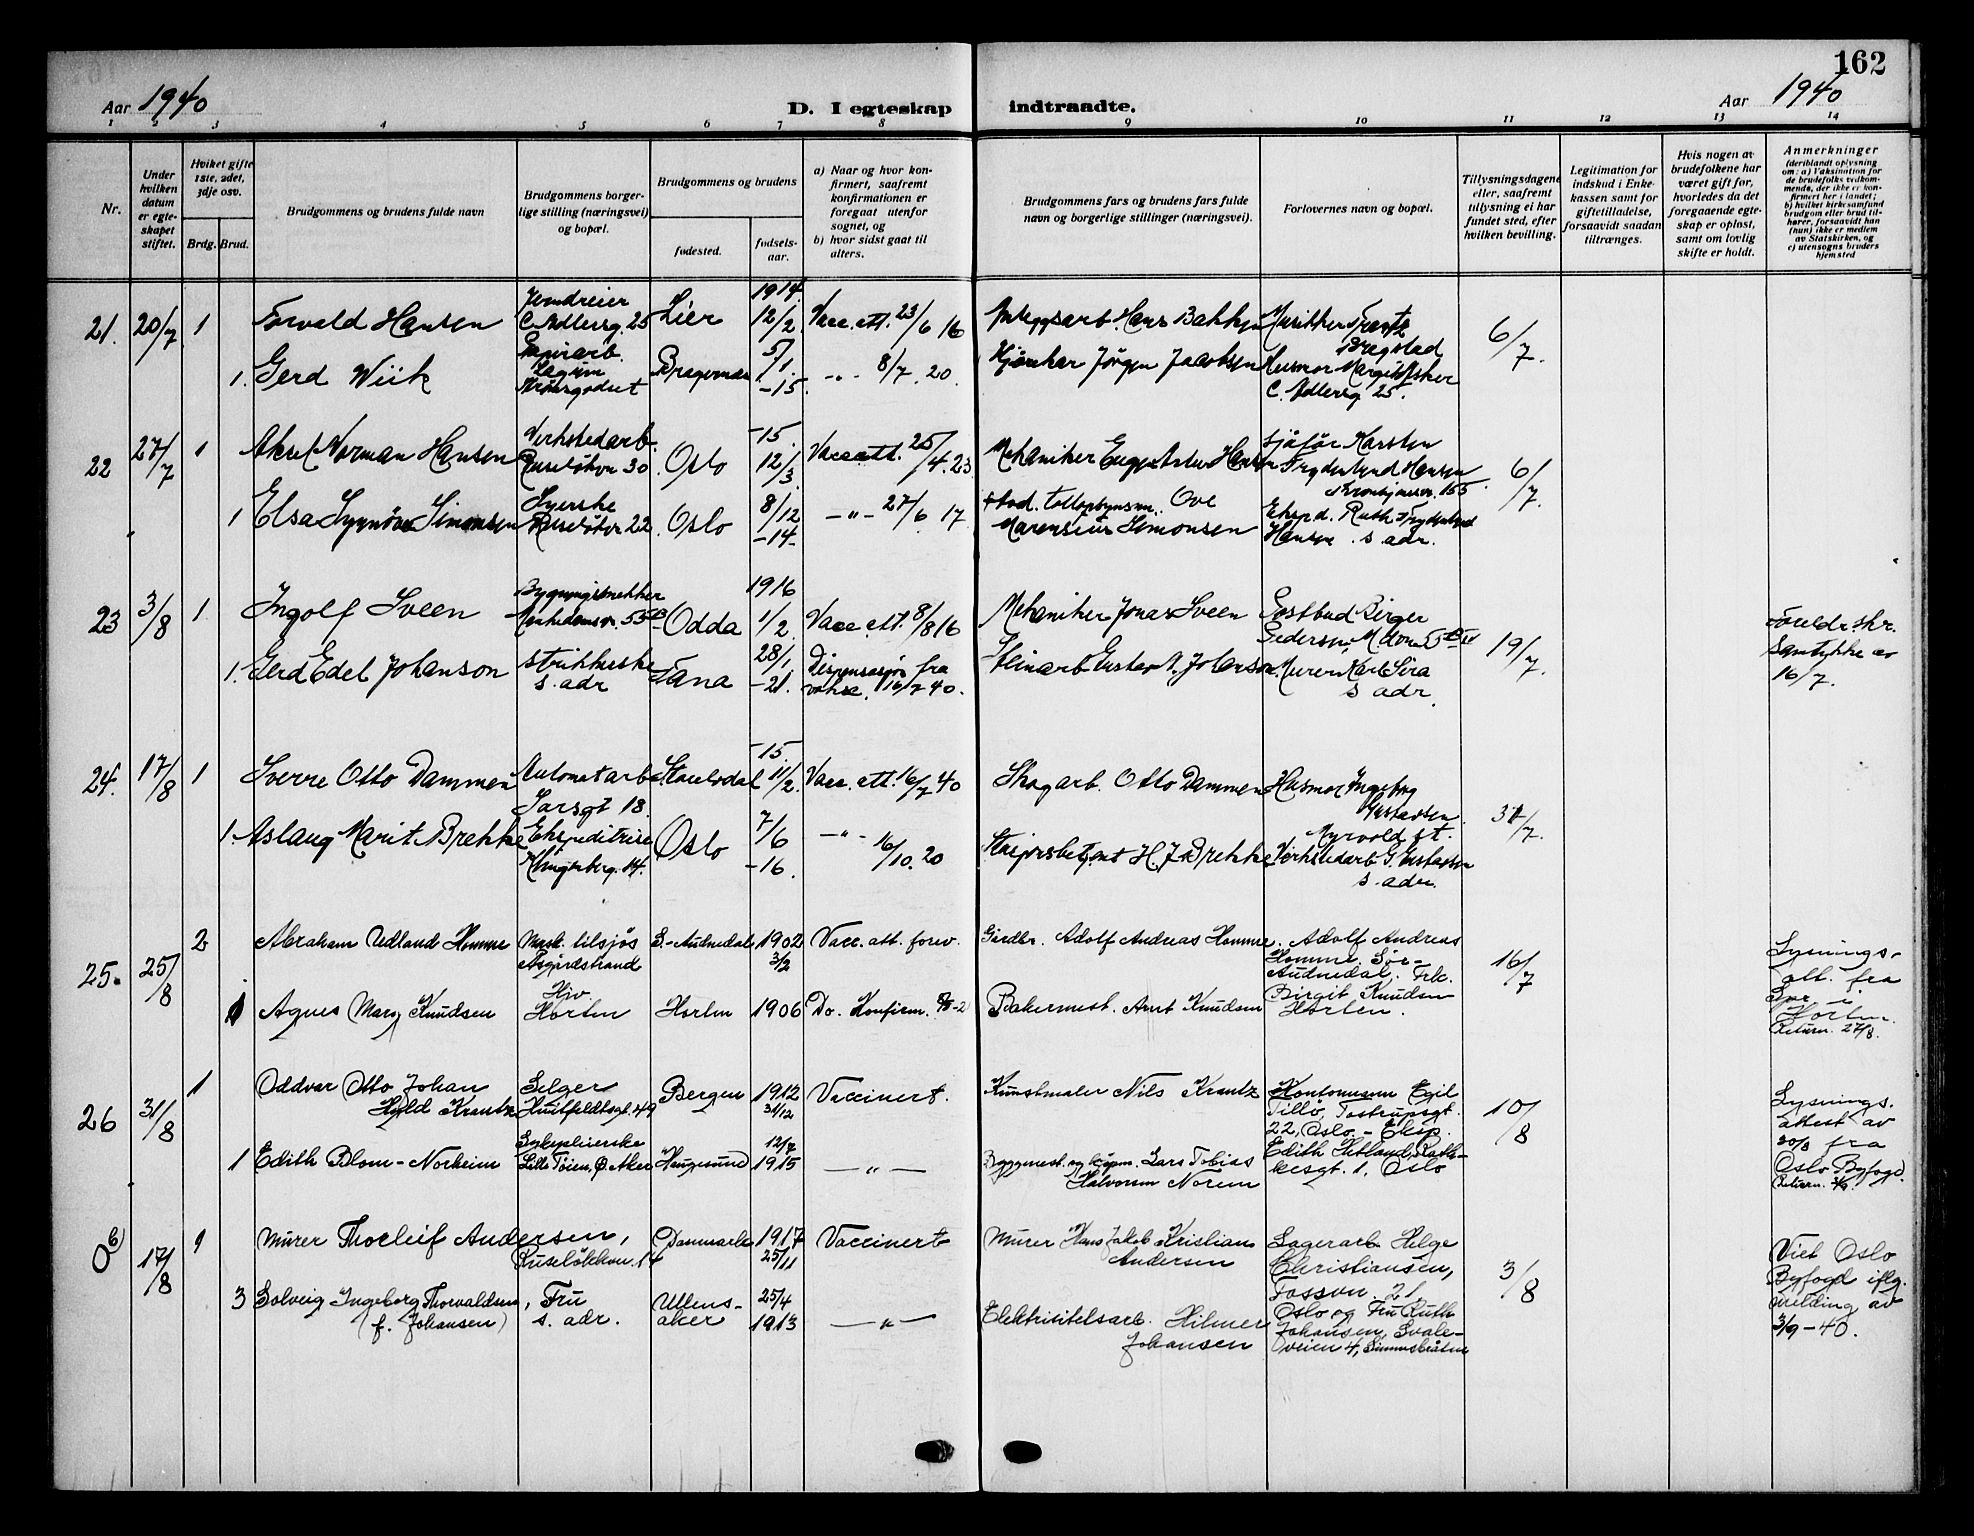 162
Aar 1940
D. I egteskap indtraadte.
Aar 1940
1 2 3 4 5 6 7 8 9 10 11 12 13 14
Nr.
Under hvilken datum er egteskapet stiftet.
Hvilket gifte 1ste, 2det, 3dje osv.
Brdg. Brud.
Brudgommens og brudens fulde navn
Brudgommens borgerlige stilling (næringsvei) og bopæl.
Brudgommens og brudens
fødested.
fødselsaar.
a) Naar og hvor konfirmert, saafremt konfirmationen er foregaat utenfor sognet, og
b) hvor sidst gaat til alters.
Brudgommens fars og brudens fars fulde navn og borgerlige stillinger (næringsvei).
Forlovernes navn og bopæl.
Tillysningsdagene eller, saafremt tillysning ei har fundet sted, efter hvilken bevilling.
Legitimation for indskud i Enkekassen samt for giftetilladelse, forsaavidt saadan tiltrænges.
Hvis nogen av brudefolkene har været gift før, hvorledes da det foregaaende egteskap er opløst, samt om lovlig skifte er holdt.
Anmerkninger
(deriblandt oplysning om: a) Vaksination for de brudefolks vedkommende, der ikke er konfirmert her i landet; b) hvilket kirkesamfund brudgom eller brud tilhører, forsaavidt han (hun) ikke er medlem av Statskirken, og c) utensogns bruders hjemsted
21. 20/7 1 Torvald Hansen
Jerndreier
C. Adlersg. 25
Lier
1914.
12/2
Vacc. att. 23/6 16
Hans Bakken
6/7.
1. Gerd Wiik
Papirarb.
Strømsgodset
Bragernes
5/1.
-15.
-"- 8/7. 20.
Jørgen Jacobsen
Husmor Margit
C. Adlersg 25.
22 27/7 1 Aksel Norman Hansen
Verkstedarb.
Ruseløkvn 30.
Oslo
-15.
12/3
Vacc att. 25/4. 23
Mekaniker Hansen
Sjåfør Karsten
Frydenlund Hansen
155.
6/7.
1 Elsa Synnøve Simonsen
Syerske
Ruseløkvn 22
Oslo
8/12
-14-
-"- 27/6 17.
Ove
Simonsen
Eksped. Ruth Frydenlund
Hansen. s. adr.
23 3/8 1. Ingolf Sveen
Bygningssnekker
Odda
1916
1/2.
Vacc att. 8/8 16
Mekaniker Jonas Sveen
Postbud Birger
Pedersen,
19/7.
Foreldr. skr.
Samtykke av
16/7.
1. Gerd Edel Johanson
Strikkerske
s. adr
Fana
28/1
-21.
Dispensasjon fra
vaks. 16/7 40.
Steinarb Gustav A. Johanson
Murer Karl Sira
s adr.
24. 17/8 1 Sverre Otto Dammen
Automatarb.
Sarsgt 18.
-15.
11/2.
Vacc. att. 16/7 40
Skogarb. Otto Dammen
Husmor Ingeborg
Gustavsen
Myrvold st.
31/7.
1. Aslaug Marit Brekke
Ekspeditrise
Oslo
7/6
-16.
-"- 16/10. 20
H. J. Brekke
Verkstedarb G. Gustavsen
s. adr.
25. 25/8 2 Abraham Udland Homme
Mask. tilsjøs
Åsgårdstrand
S.-Audnedal
1902
3/2
Vacc. att. forev.
Gårdbr. Adolf Andreas Homme.
Adolf Andreas
Homme, Sør-
Audnedal. Frk.
Birgit Knudsen
Horten.
16/7
Lysnings-
att. fra
Spr. i
Horten.
Return. 27/8.
1 Agnes Mary Knudsen
Hjv
Horten
Horten
1906
Do. Konfirm.
Bakermest. Arnt Knudsen
26 31/8 1 Oddvar Otto Johan
Hyld Krantz
Selger
Huitfeldtsgt. 49
Bergen
1912
31/12
Vaccinert.
Kunstmaler Nils Krantz
Kontormann Egil
Tillø, Tostrupsgt.
22, Oslo. - Eksp.
Edith Hetland,
kesgt. 1. Oslo
10/8
Lysnings.
attest av
20/8 fra
Oslo Byfogd.
Return. 2/9.
1 Edith Blom-Norheim
Sykepleierske
Lille Tøien, Ø. Aker
Haugesund
12/7
1915
-"-
Byggmest. og kjøpm. Lars Tobias
Halvorsen Noreim
0 b) 17/8 1 Murer Thorleif Andersen,
Ruseløkkvn. 14
Danmark
1917
25/11
Vaccinert
Murer Hans Jakob Kristian
Andersen
Lagerarb. Helge
Christiansen,
Fossvn. 21,
Oslo og Fru Ruth
Johansen, Svale-
veien 4,
3/8
Viet Oslo
Byfogd iflg.
melding av
3/9-40.
3 Solveig Ingeborg Thorvaldsen, Fru
(f. Johansen) s. adr.
Ullens-
aker
25/4
1913
-"-
Elektrisitetsarb. Hilmer
Johansen